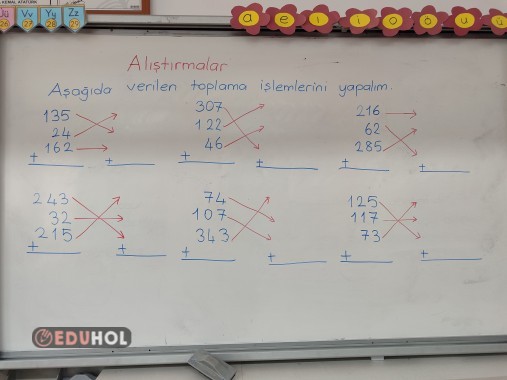 KEMAL ATATÜRK
Üü Vv Yy Zz
26 27 28 29
a e ı i o ö u ü
Alıştırmalar
Aşağıda verilen toplama işlemlerini yapalım.
135 307 216
24 122 62
162 46 285
+ + + + + +
243 74 125
32 107 117
215 343 73
+ + + + + +
EDUHOL